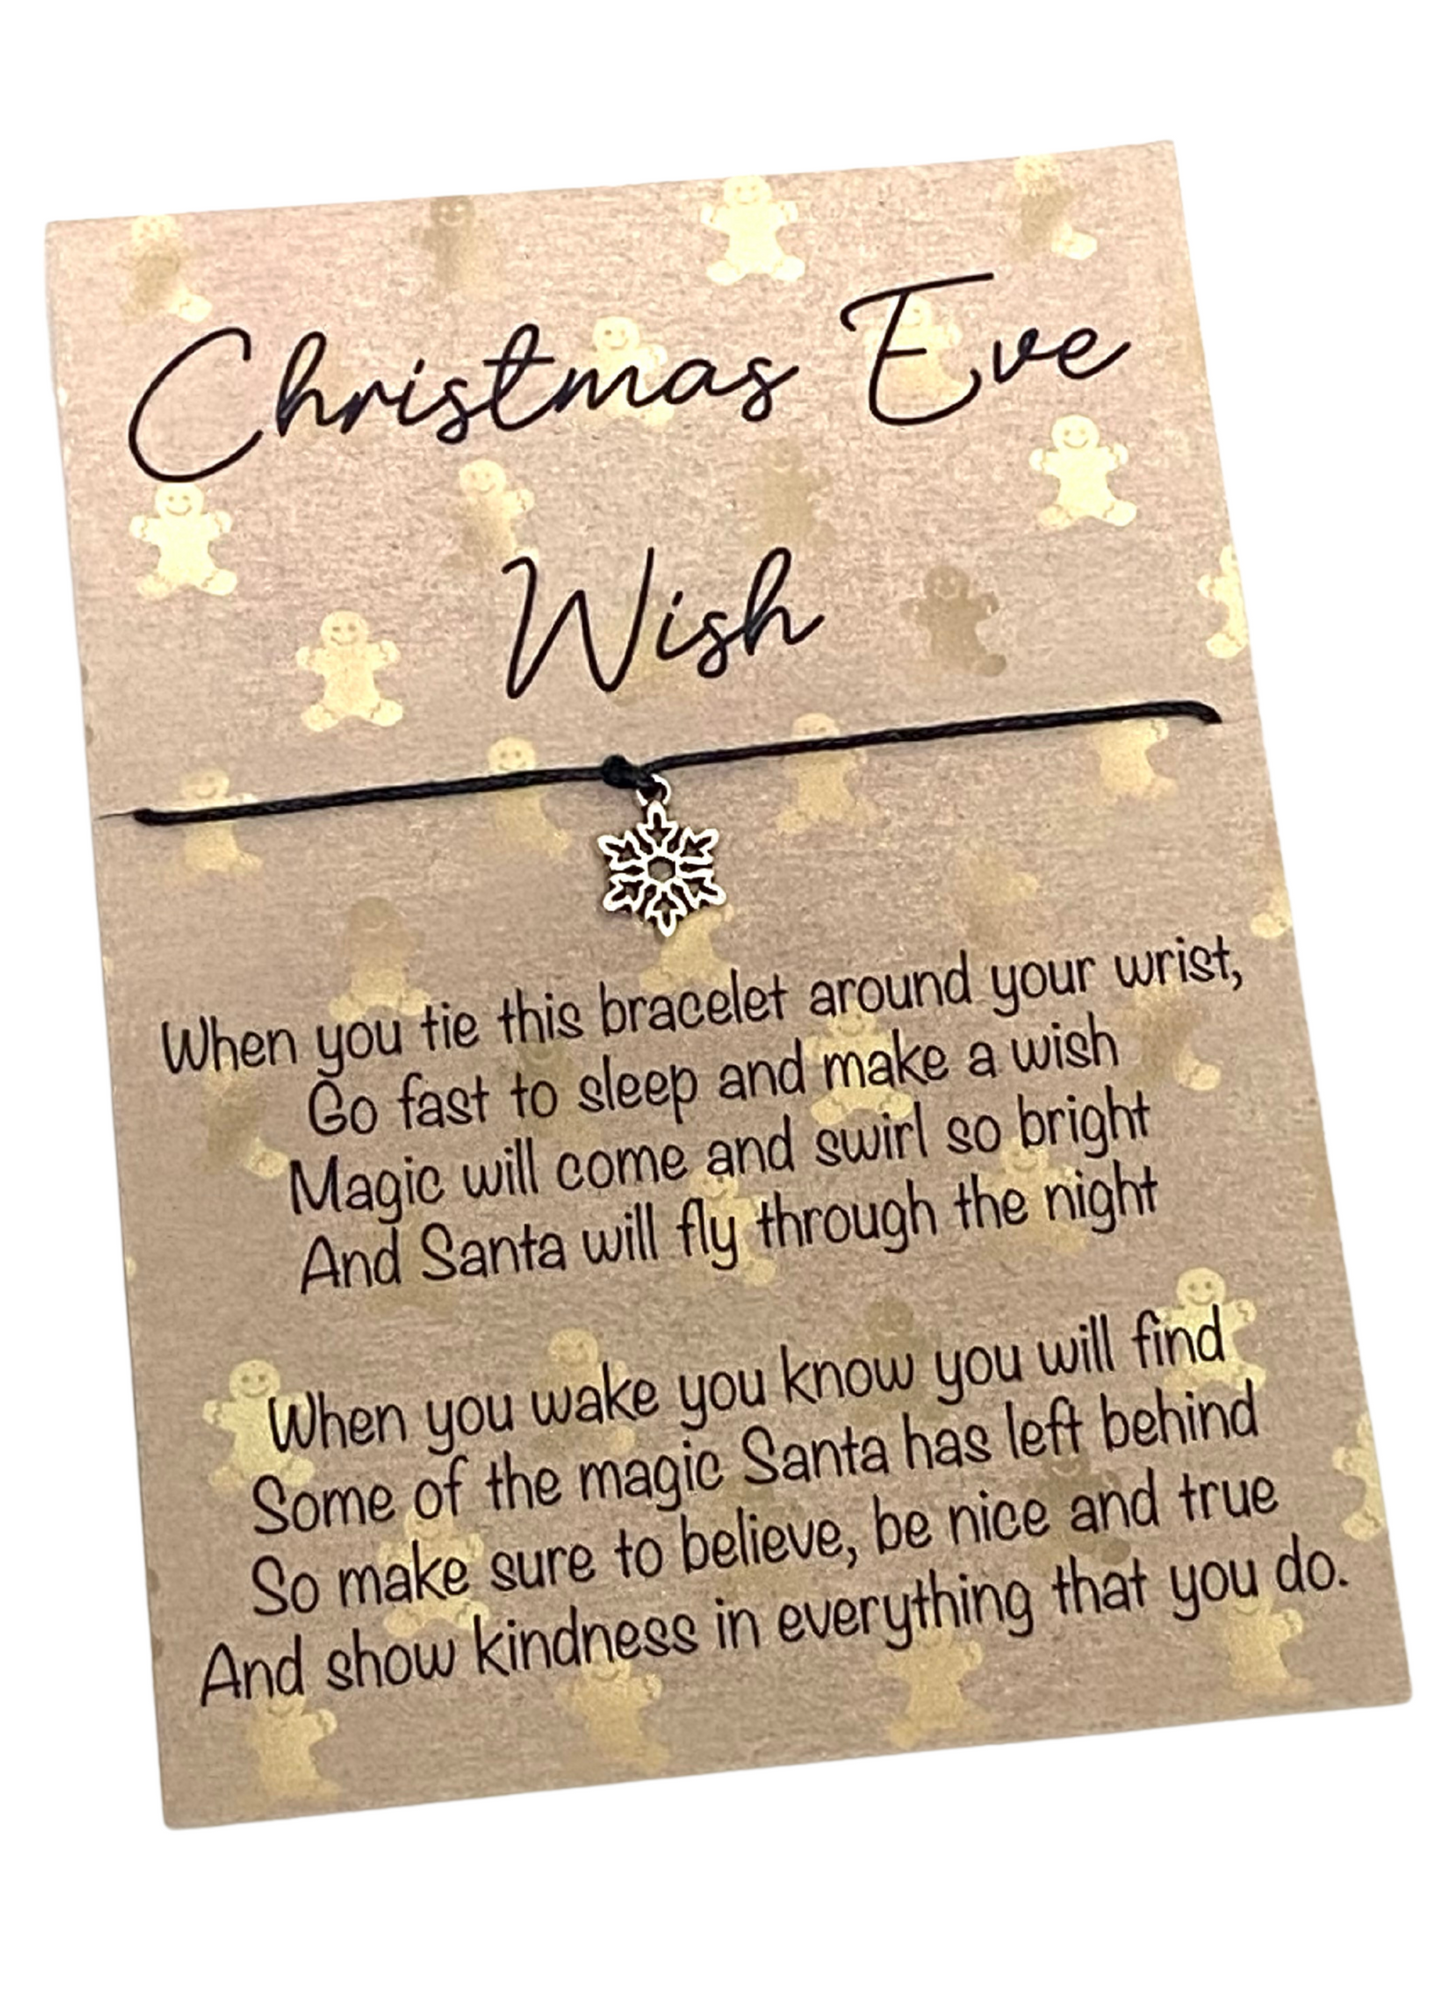 Christmas Eve
Wish
When you tie this bracelet around your wrist,
Go fast to sleep and make a wish
Magic will come and swirl so bright
And Santa will fly through the night
When you wake you know you will find
Some of the magic Santa has left behind
So make sure to believe, be nice and true
And show kindness in everything that you do.